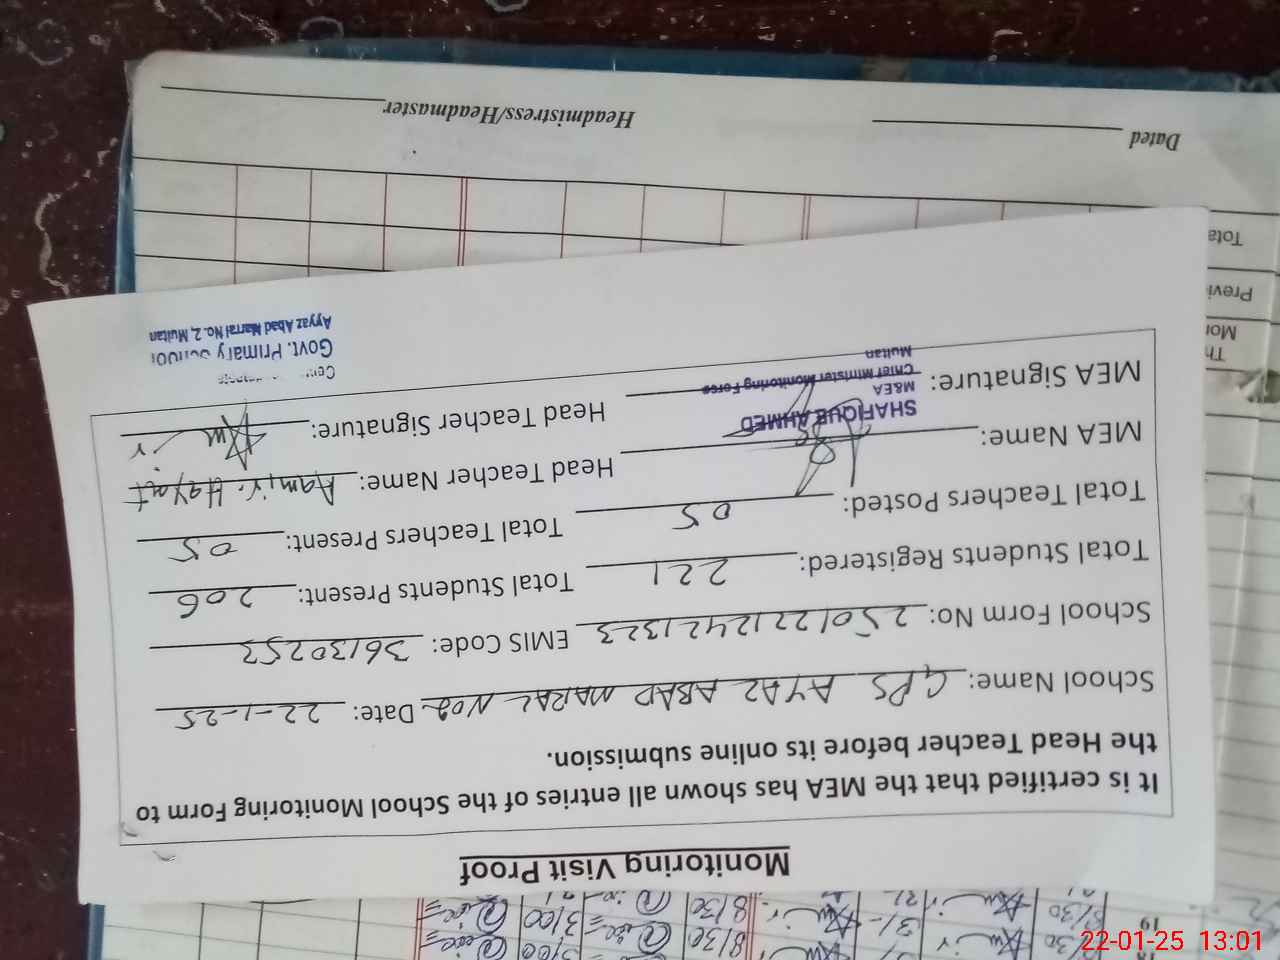 Monitoring Visit Proof
It is certified that the MEA has shown all entries of the School Monitoring Form to
the Head Teacher before its online submission.
School Name: GPS AYAZ ABAD MARAL NO2 Date: 22-1-25
School Form No: 25012212421323 EMIS Code: 36130253
Total Students Registered: 221 Total Students Present: 206
Total Teachers Posted: 05 Total Teachers Present: 05
MEA Name: Head Teacher Name: Aamir Hayat
MEA Signature: Head Teacher Signature:
SHAFIQUE AHMED
M&EA
Chief Minister Monitoring Force
Multan
Govt. Primary School
Ayyaz Abad Marral No. 2, Multan
Dated Headmistress/Headmaster
19
8/30
3/100
8/30
3/100
22-01-25 13:01